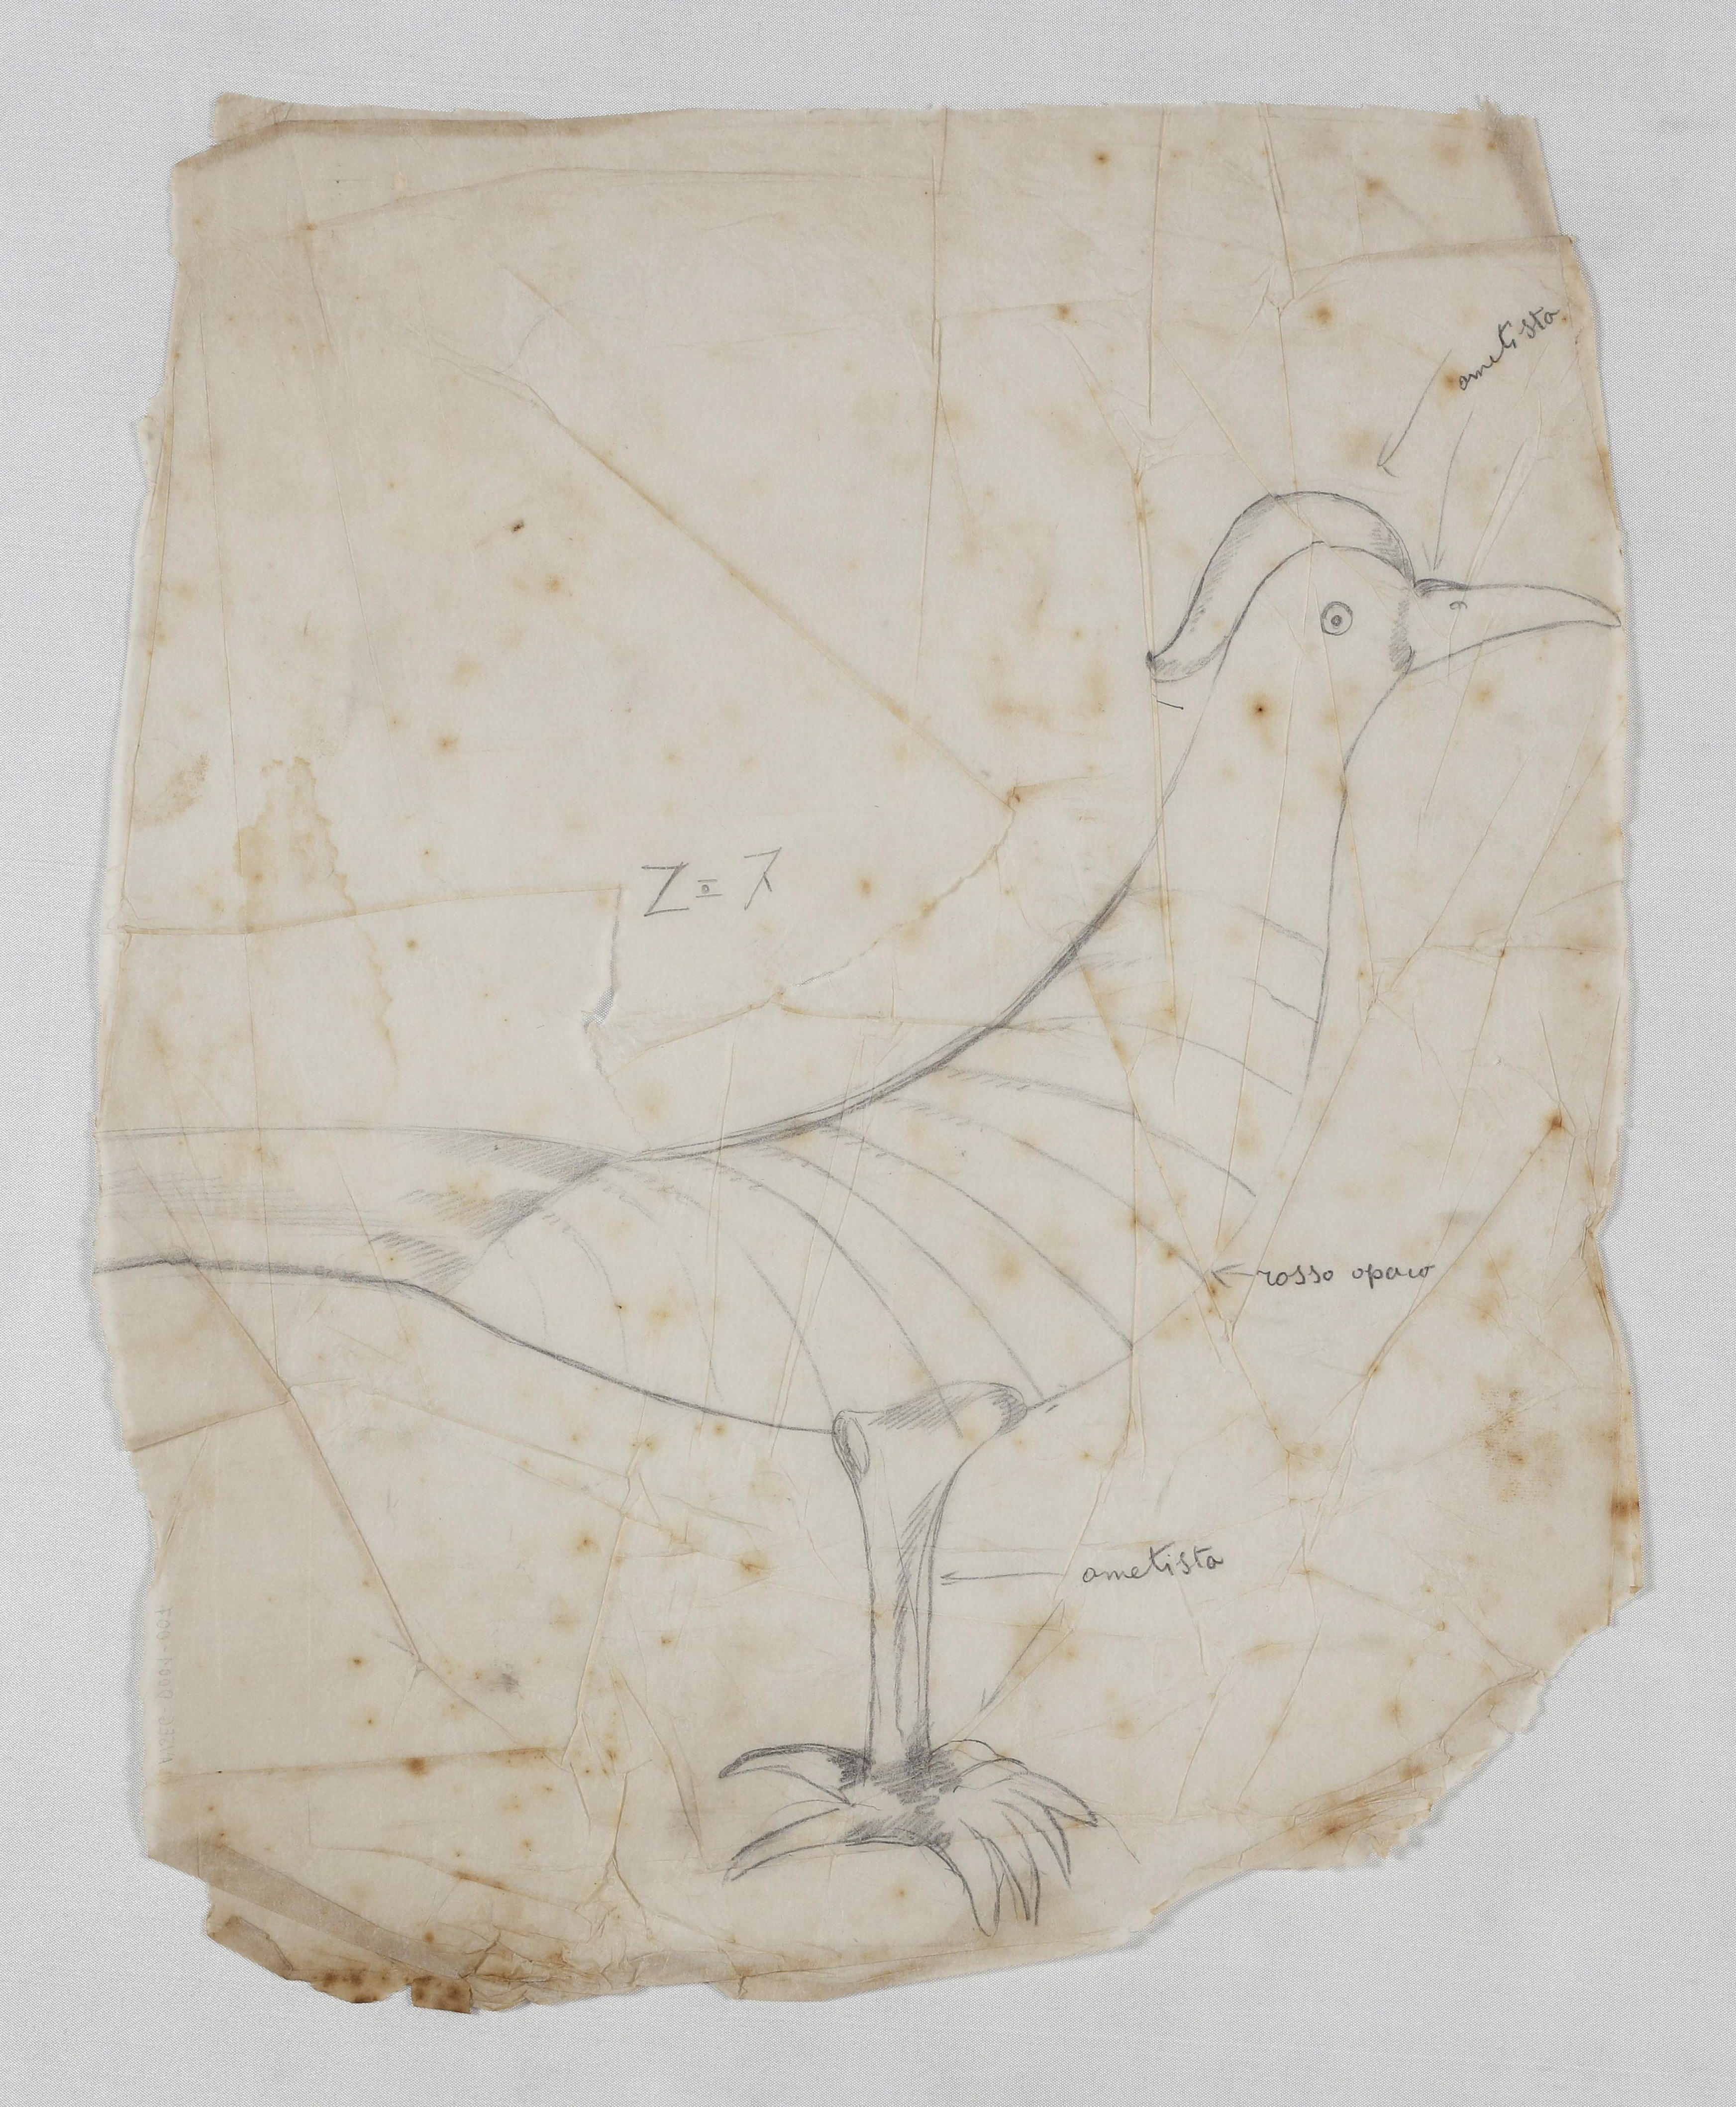 ametista
Z=7
rosso opaco
ametista